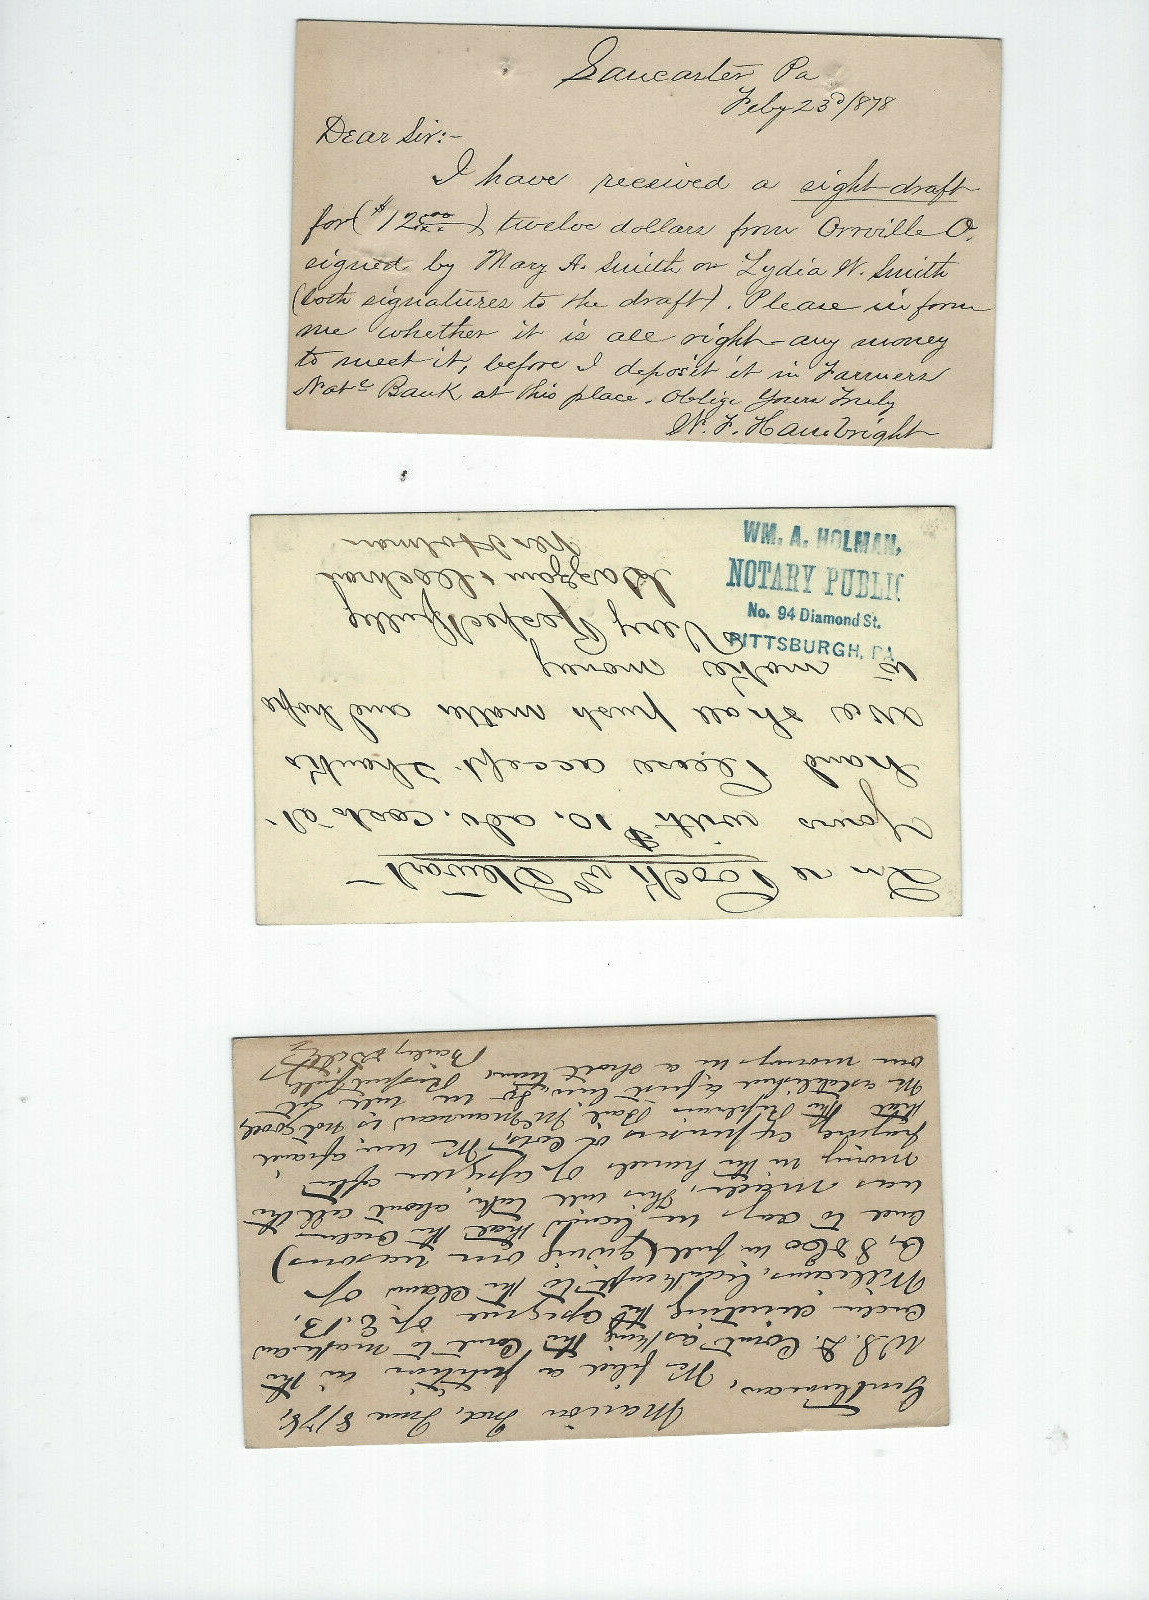 Lancaster, Pa
Feby 23d/1878
Dear Sir:-
I have received a sight draft
for ($12.00/xx) twelve dollars from Orrville O.
signed by Mary A. Smith or Lydia W. Smith
(both signatures to the draft). Please inform
me whether it is all right - any money
to meet it, before I deposit it in Farmers
Natl Bank at this place. Oblige Yours Truly
W. F. Hambright
WM. A. HOLMAN,
NOTARY PUBLIC
No. 94 Diamond St.
PITTSBURGH, PA
In re vs Stewart
Yours with $10. adv. costs at
hand Please accept Thanks
We shall push matter and hope
to make money
Very Respectfully
& Cochran
Per Holman
Marion Ind, June 8/78,
Gentlemen, We filed a petition in the
U.S. D. Court asking the Court to make an
order directing the assignee of E. B.
Williams, bankrupt to the claim of
C, S & Co in full (giving our reasons)
and to day we learned that the order
was made, This will take about all the
money in the hands of assignee after
paying expenses & costs, We are afraid
that the Replevin Bail McMawan is not good,
We established a first lien, So we will get
our money in a short time, Respectfully
Bailey &